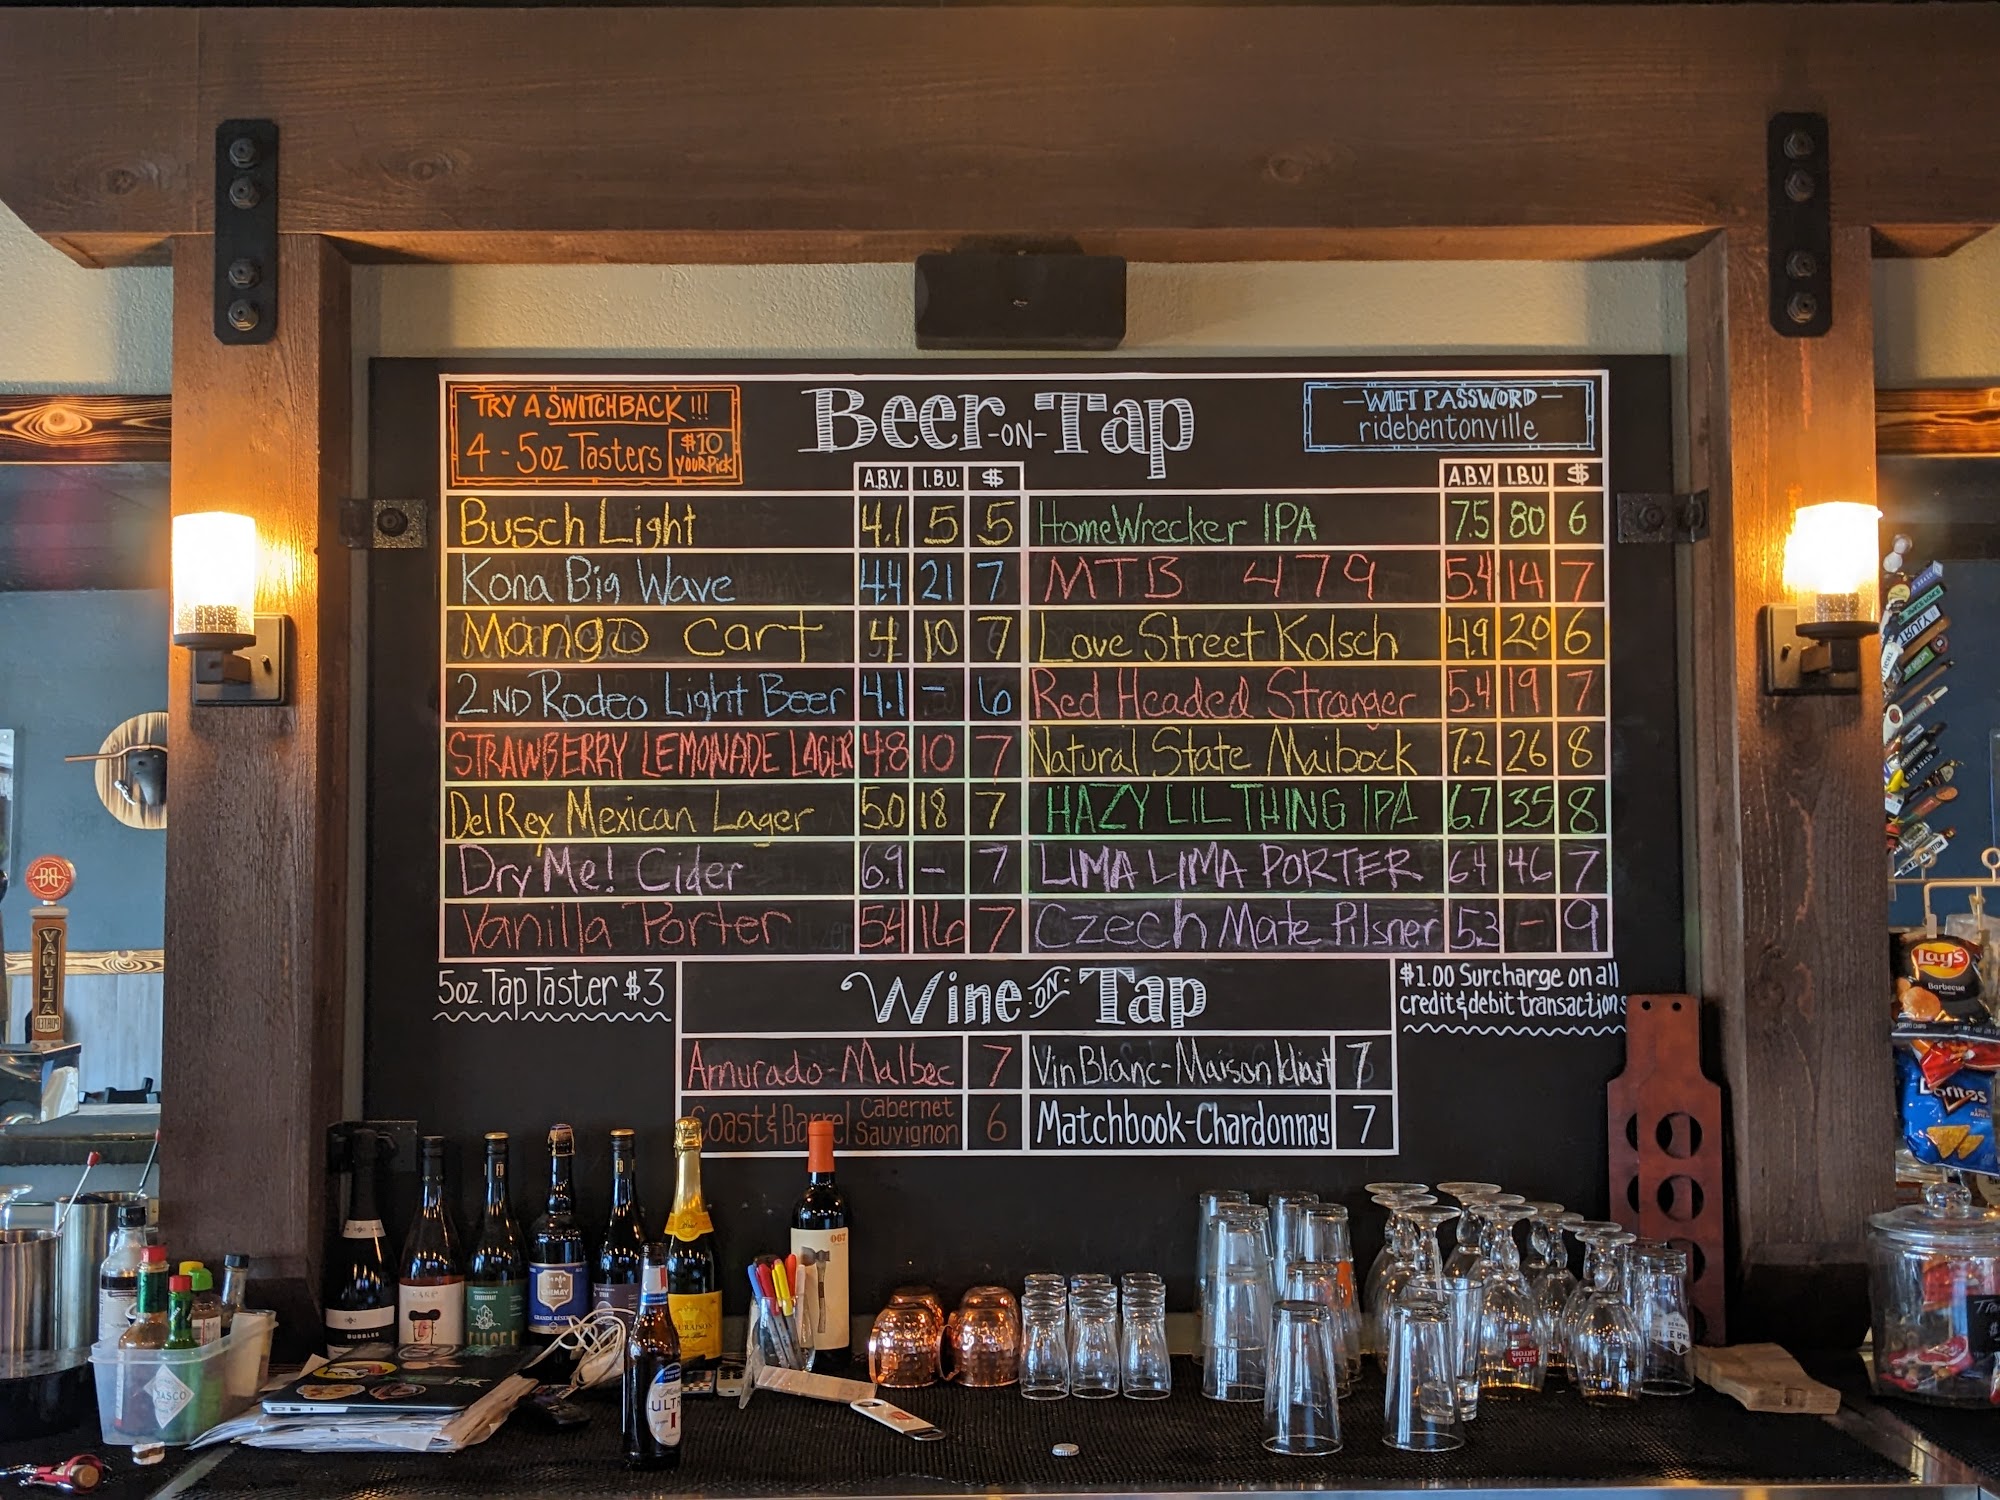 TRY A SWITCHBACK !!!
4 - 5oz Tasters
$10
YOUR PICK
Beer -ON- Tap
—WIFI PASSWORD—
ridebentonville
A.B.V. I.B.U. $
Busch Light 4.1 5 5
Kona Big Wave 4.4 21 7
Mango Cart 4 10 7
2ND Rodeo Light Beer 4.1 - 6
STRAWBERRY LEMONADE LAGER 4.8 10 7
Del Rey Mexican Lager 5.0 18 7
Dry Me! Cider 6.9 - 7
Vanilla Porter 5.4 16 7
A.B.V. I.B.U. $
HomeWrecker IPA 7.5 80 6
MTB 479 5.4 14 7
Love Street Kolsch 4.9 20 6
Red Headed Stranger 5.4 19 7
Natural State Maibock 7.2 26 8
HAZY LIL THING IPA 6.7 35 8
LIMA LIMA PORTER 6.4 46 7
Czech Mate Pilsner 5.3 - 9
5oz. Tap Taster $3
Wine ON Tap
$1.00 Surcharge on all
credit & debit transactions
Amurado-Malbec 7
Coast & Barrel Cabernet Sauvignon 6
Vin Blanc-Maison Idiart 7
Matchbook-Chardonnay 7
BB
VANILLA
PORTER
Lay's
Barbecue
Doritos
BUBBLES
CHIMAY
GRANDE RÉSERVE
007
TABASCO
ULTRA
STELLA
ARTOIS